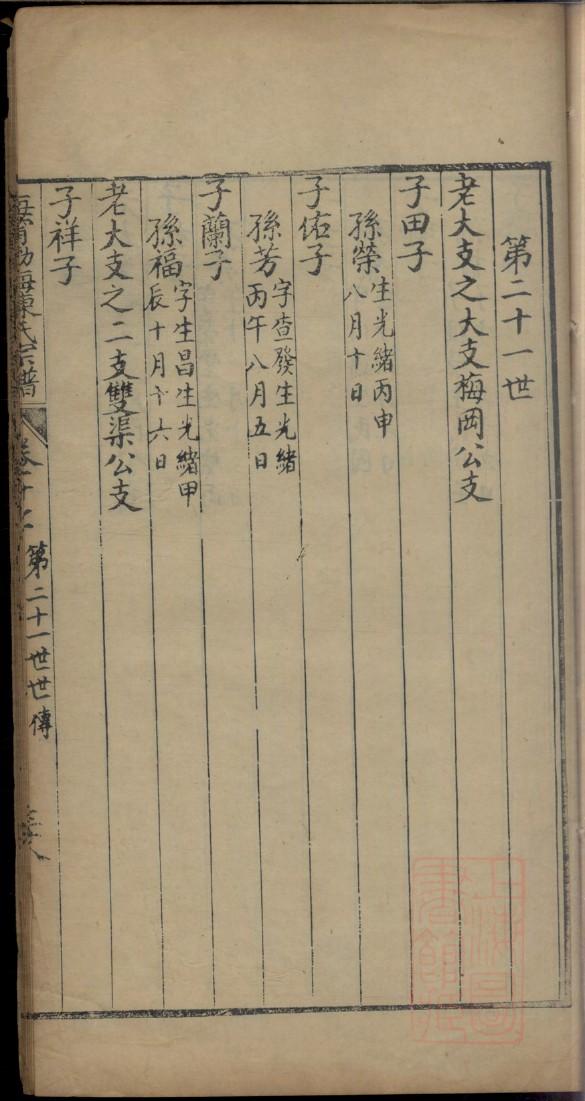 第二十一世
老大支之大支梅岡公支
子田子
孫榮生光緒丙申
八月十日
子佑子
孫芳字查發生光緒
丙午八月五日
子蘭子
孫福字生昌生光緒甲
辰十月十六日
老大支之二支雙渠公支
子祥子
氏宗譜
卷十
第二十一世世傳
上海圖書館藏